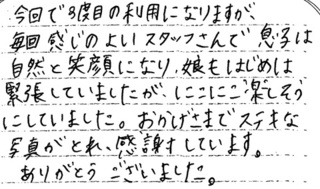 今回で3度目の利用になりますが、
毎回感じのよいスタッフさんで息子は
自然と笑顔になり、娘もはじめは
緊張していましたが、にこにこ楽しそう
にしていました。おかげさまでステキな
写真がとれ、感謝しています。
ありがとうございました。